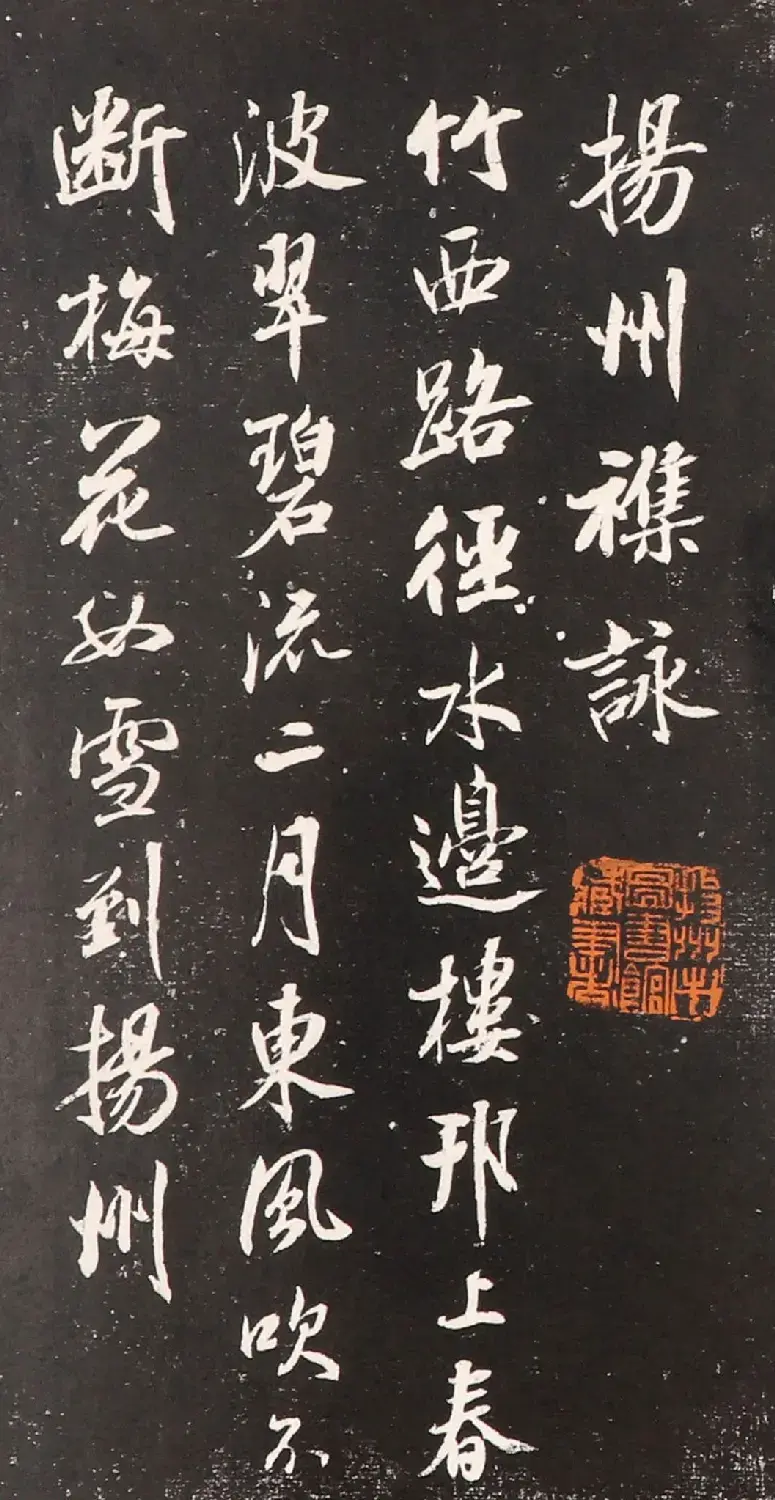 揚州襍詠
竹西路徑水邊樓邗上春
波翠碧流二月東風吹不
断梅花如雪到揚州